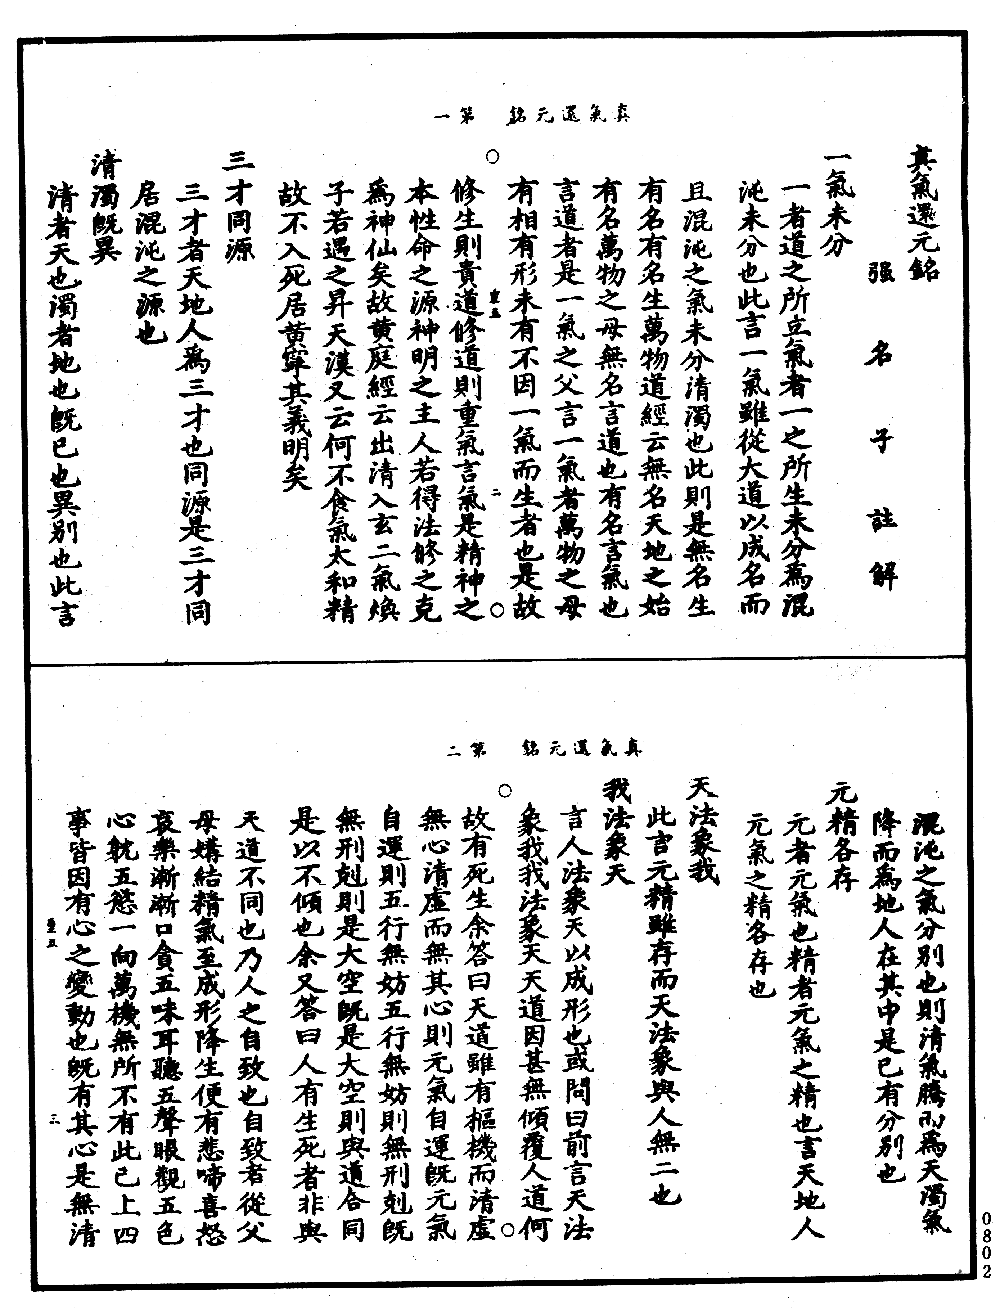 真氣還元銘 第一
真氣還元銘
强名子註解
一氣未分
一者道之所立氣者一之所生未分爲混
沌未分也此言一氣雖從大道以成名而
且混沌之氣未分清濁也此則是無名生
有名有名生萬物道經云無名天地之始
有名萬物之母無名言道也有名言氣也
言道者是一氣之父言一氣者萬物之母
有相有形未有不因一氣而生者也是故
二
修生則貴道修道則重氣言氣是精神之
本性命之源神明之主人若得法修之克
爲神仙矣故黄庭經云出清入玄二氣煥
子若遇之昇天漢又云何不食氣太和精
故不入死居黄寧其義明矣
三才同源
三才者天地人爲三才也同源是三才同
居混沌之源也
清濁旣異
清者天也濁者地也旣已也異别也此言
真氣還元銘 第二
混沌之氣分别也則清氣騰而爲天濁氣
降而爲地人在其中是已有分别也
元精各存
元者元氣也精者元氣之精也言天地人
元氣之精各存也
天法象我
此言元精雖存而天法象與人無二也
我法象天
言人法象天以成形也或問曰前言天法
象我我法象天天道因甚無傾覆人道何
故有死生余答曰天道雖有樞機而清虚
無心清虚而無其心則元氣自運旣元氣
自運則五行無妨五行無妨則無刑剋旣
無刑剋則是大空旣是大空則與道合同
是以不傾也余又答曰人有生死者非與
天道不同也乃人之自致也自致者從父
母媾結精氣至成形降生便有悲啼喜怒
哀樂漸漸口貪五味耳聽五聲眼觀五色
心躭五慾一向萬機無所不有此已上四
事皆因有心之變動也旣有其心是無清
0802